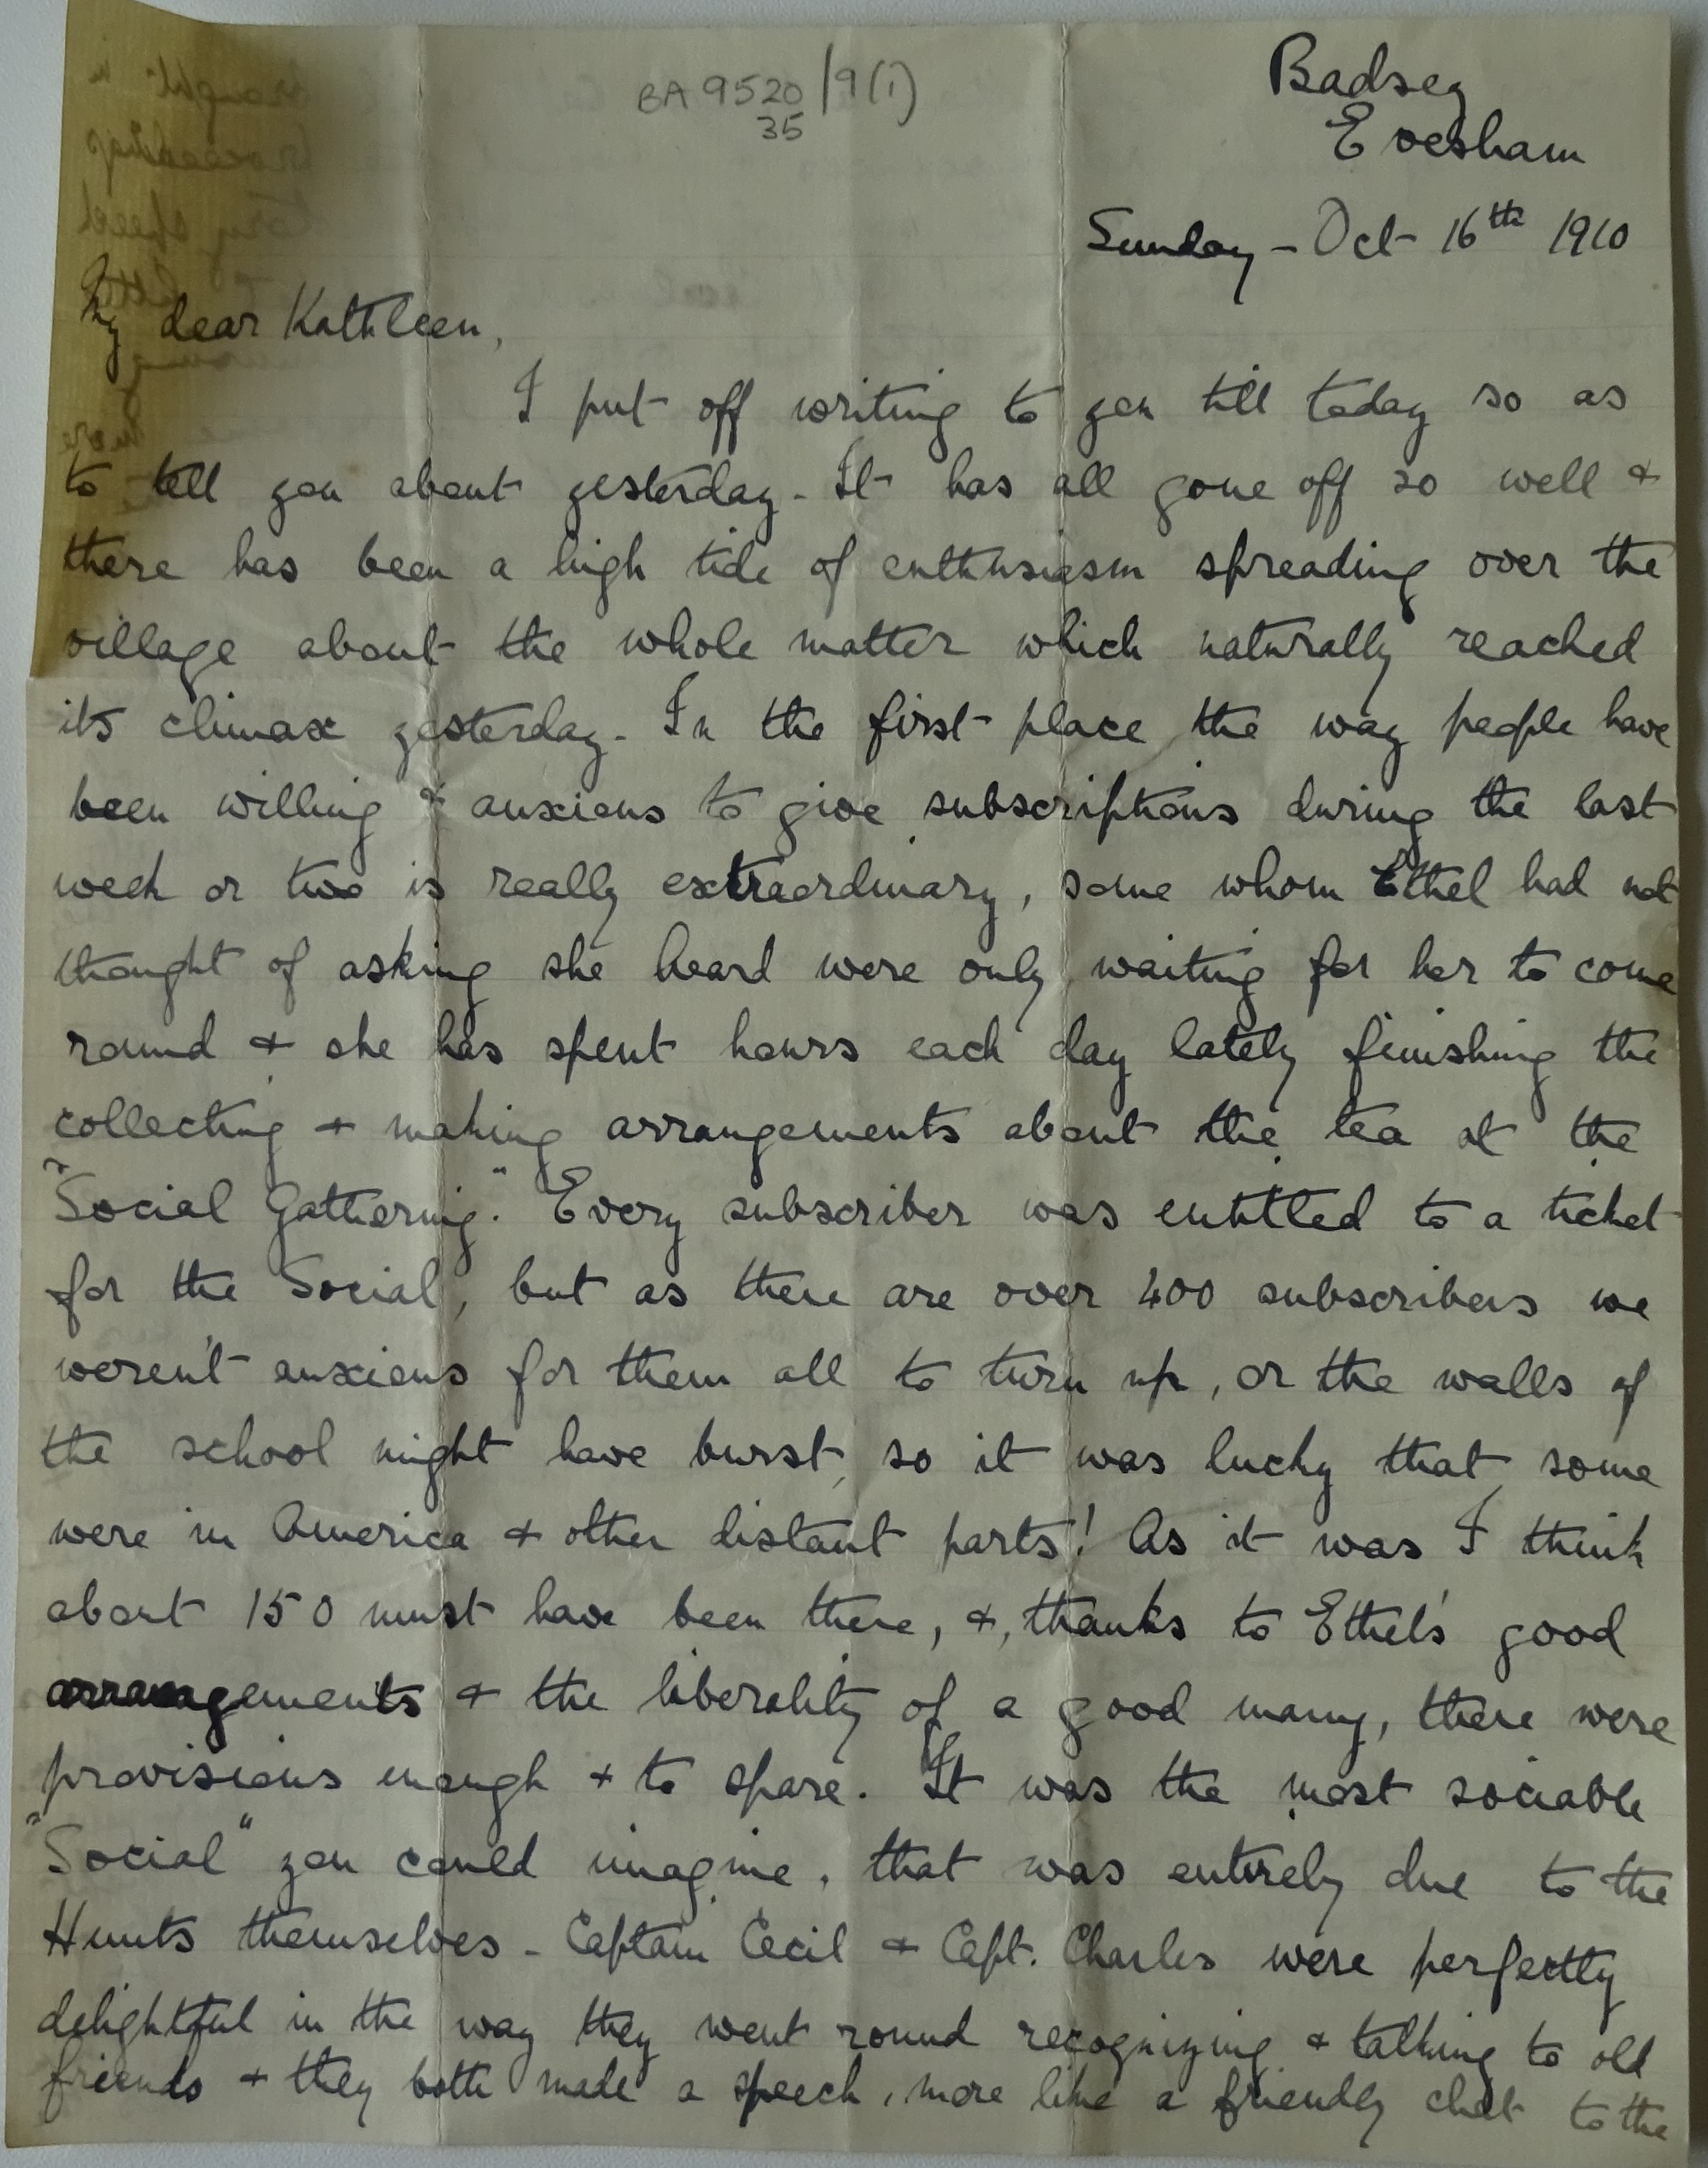 BA 9520/9(i)
35
Badsey
Evesham
Sunday - Oct 16th 1910
My dear Kathleen,
I put off writing to you till today so as
to tell you about yesterday. It has all gone off so well &
there has been a high tide of enthusiasm spreading over the
village about the whole matter which naturally reached
its climax yesterday. In the first place the way people have
been willing & anxious to give subscriptions during the last
week or two is really extraordinary, some whom Ethel had not
thought of asking she heard were only waiting for her to come
round & she has spent hours each day lately finishing the
collecting & making arrangements about the tea at the
"Social Gathering." Every subscriber was entitled to a ticket
for the Social, but as there are over 400 subscribers we
weren't anxious for them all to turn up, or the walls of
the school might have burst, so it was lucky that some
were in America & other distant parts! As it was I think
about 150 must have been there, &, thanks to Ethel's good
arrangements & the liberality of a good many, there were
provisions enough & to spare. It was the most sociable
"Social" you could imagine, that was entirely due to the
Hunts themselves - Captain Cecil & Capt. Charles were perfectly
delightful in the way they went round recognizing & talking to old
friends & they both made a speech, more like a friendly chat to the